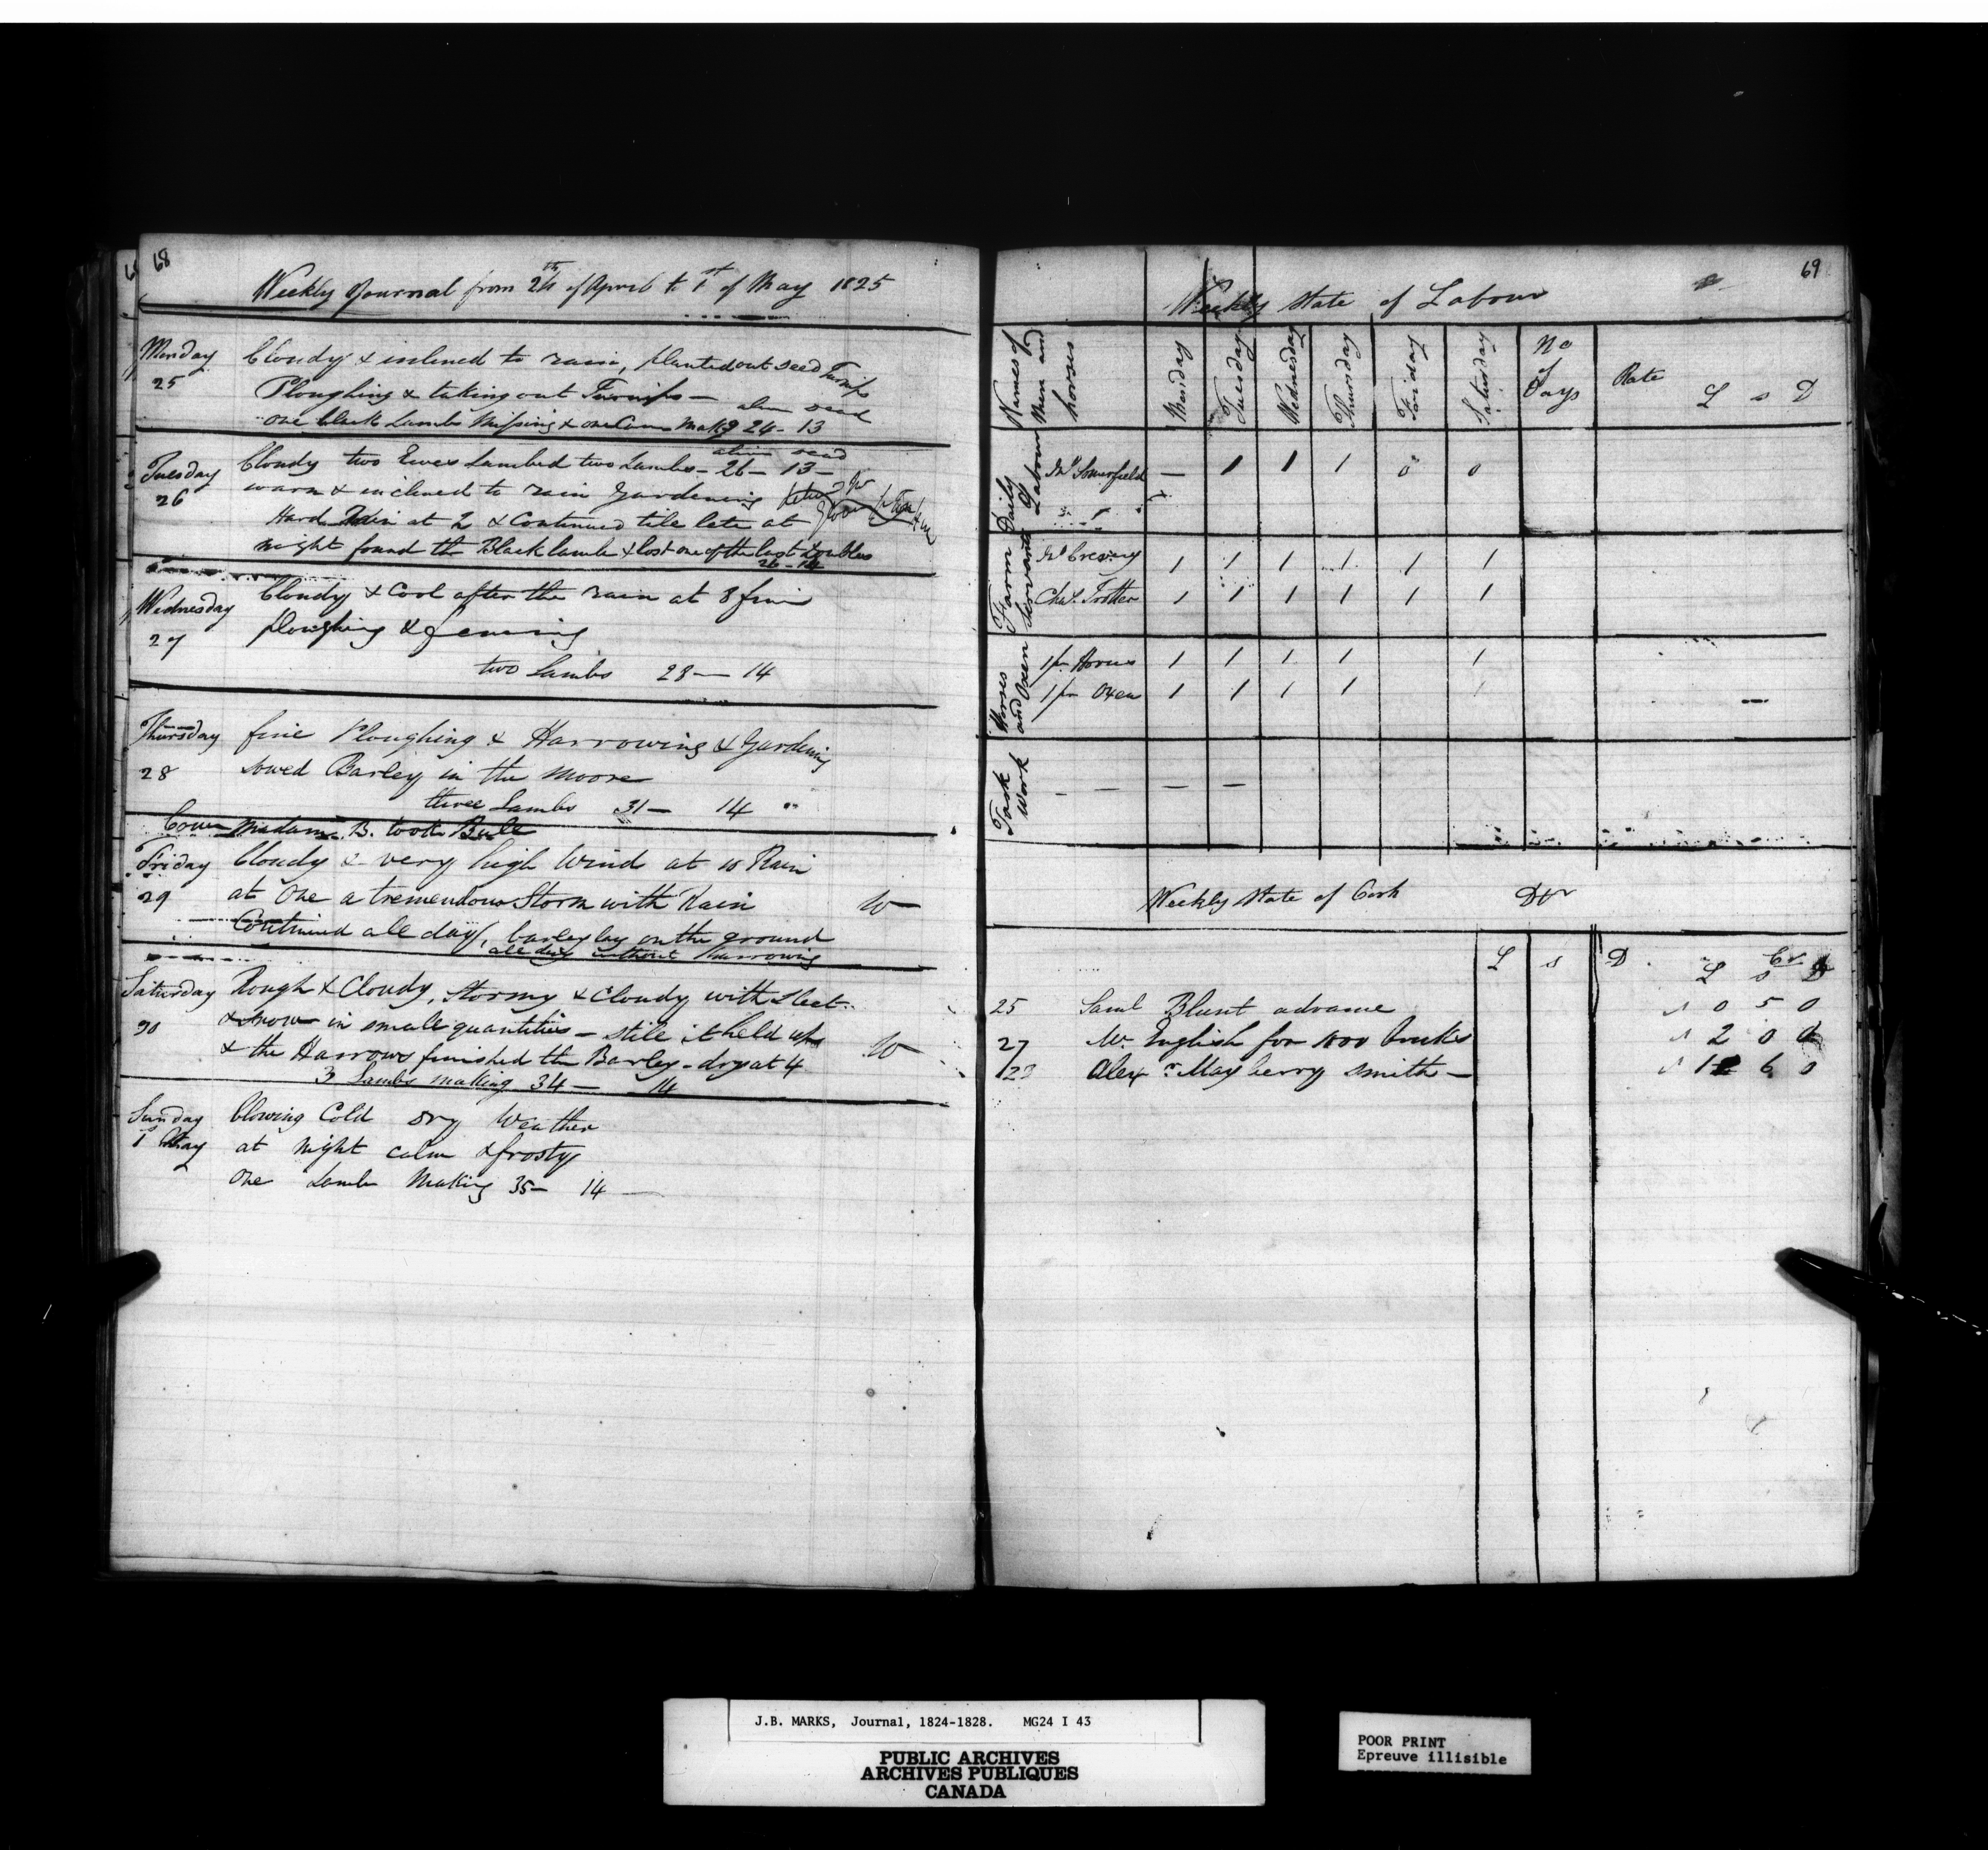 68
Weekly Journal from 24th of April to 1st of May 1825
Monday Cloudy & inclined to rain, planted out seed Turnips
25 Ploughing & taking out Turnips —
alive dead
one black Lamb Missing & one Came Makg 24 - 13
alive dead
Tuesday Cloudy two Ewes Lambed two Lambs - 26 - 13 -
26 warm & inclined to rain Gardening
Hard Rain at 2 & Continued till late at
night found the Black lamb & lost one of the last doubles
26 - 14
Wednesday Cloudy & Cool after the rain at 8 fine
27 ploughing & fencing
two Lambs 28 — 14
Thursday fine Ploughing & Harrowing & Gardening
28 sowed Barley in the Moore
three Lambs 31 — 14
Cow Madam B. took Bull
Friday Cloudy & very high Wind at 10 Rain
29 at One a tremendous Storm with Rain
Continued all day, barley lay on the ground
all day without harrowing
Saturday Rough & Cloudy, Stormy & Cloudy with Sleet
30 & Snow in small quantities - still it held up
& the Harrows finished the Barley - dry at 4
3 Lambs making 34 — 14
Sunday blowing Cold dry Weather
1 May at night calm & frosty
One Lamb Making 35 — 14 —
69
Weekly State of Labour
Names of Men and horses Monday Tuesday Wednesday Thursday Friday Saturday No of Days Rate L s D
Daily Labour
Jno Somerfield — 1 1 1 0 0
Farm Servants
Jno Cresary 1 1 1 1 1 1
Chas. Trotter 1 1 1 1 1 1
Horses and Oxen
1 pr Horses 1 1 1 1 1
1 pr Oxen 1 1 1 1 1
Task Work — — — —
Weekly State of Cash Dr
L s D Cr
L s D
25 Saml Blunt advance 0 5 0
27 Mr. English for 1000 bricks 2 0 0
Alexr Mayberry Smith — 1 6 0
J.B. MARKS, Journal, 1824-1828. MG24 I 43
PUBLIC ARCHIVES
ARCHIVES PUBLIQUES
CANADA
POOR PRINT
Epreuve illisible